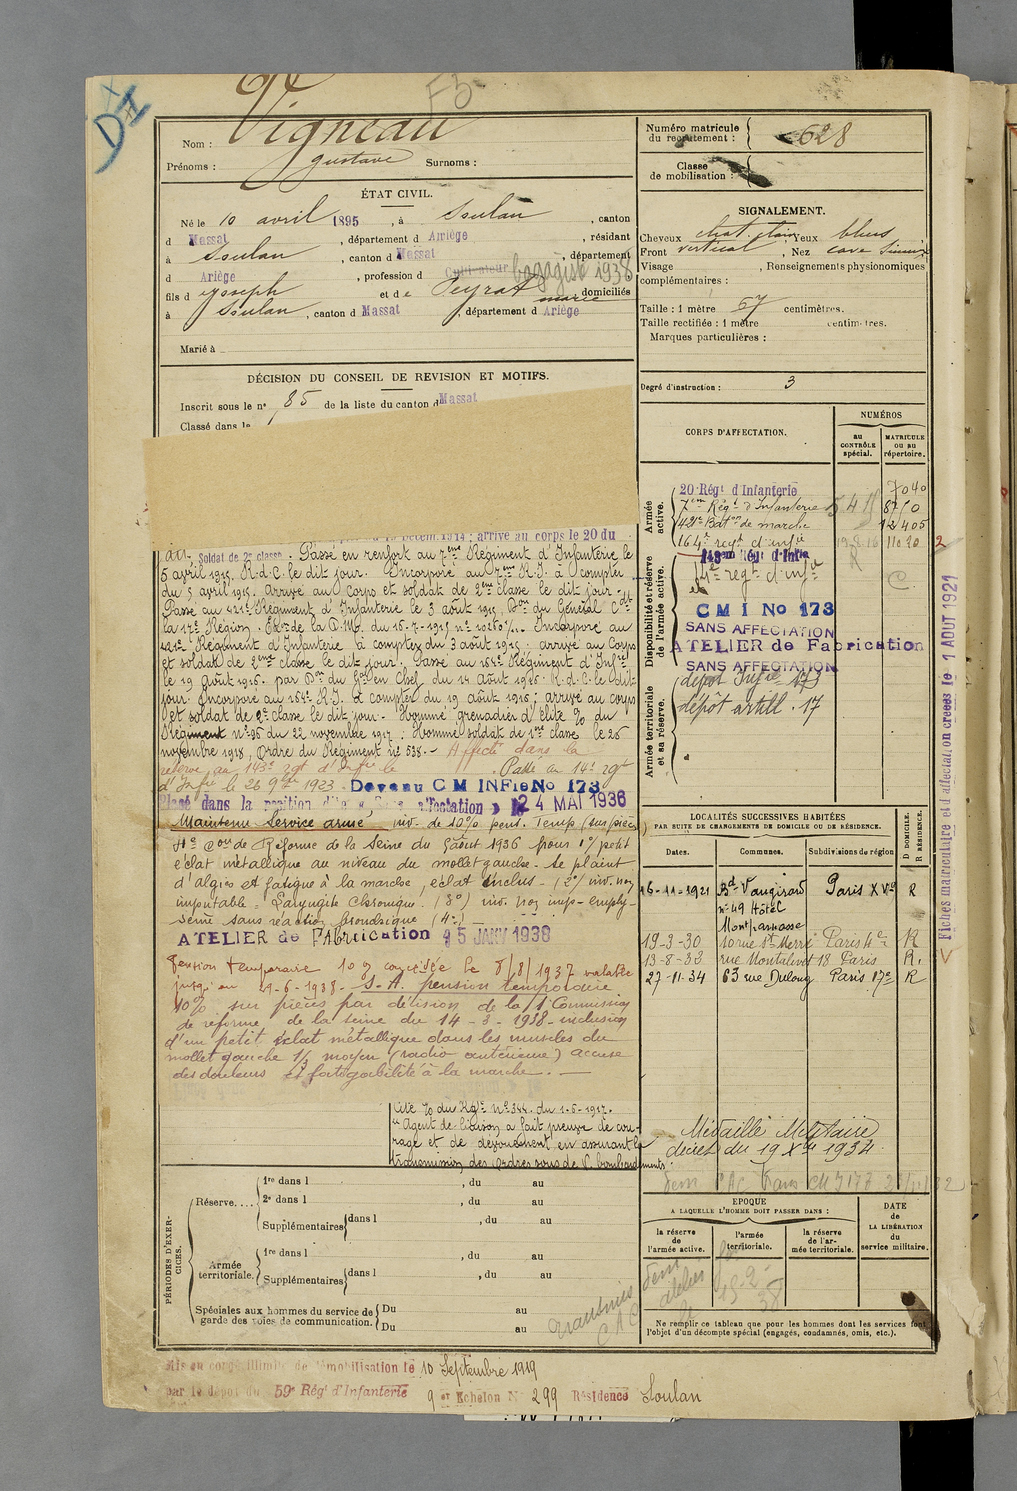 DII
F5
Nom : Vigneau
Prénoms : Gustave Surnoms :
ÉTAT CIVIL.
Né le 10 avril 1895, à Soulan, canton
d Massat, département d Ariège, résidant
à Soulan, canton d Massat, département
d Ariège, profession d Cultivateur bagagiste 1938
fils d Joseph et de Peyrat marie, domiciliés
à Soulan, canton d Massat, département d Ariège
Marié à
DÉCISION DU CONSEIL DE REVISION ET MOTIFS.
Inscrit sous le n° 85 de la liste du canton d Massat
Classé dans la
; arrivé au corps le 20 du
dit, Soldat de 2e classe. Passé en renfort au 7ème Régiment d'Infanterie le
5 avril 1915. R.d.C. le dit jour. Incorporé au 7ème R.I. à compter
du 5 avril 1915. Arrivé au corps et soldat de 2ème classe le dit jour.
Passé au 421e Régiment d'Infanterie le 3 août 1915, Don du Général Ct
la 17e Région. de la D.M. du 15-7-1915 n° Incorporé au
421e Régiment d'Infanterie à compter du 3 août 1915. arrivé au Corps
et soldat de 2ème classe le dit jour. Passé au 164e Régiment d'Infie
le 19 août 1916. par Don du Gal en Chef du 14 août 1916. R.d.C. le dit
jour. Incorporé au 164e R.I. à compter du 19 août 1916; arrivé au corps
et soldat de 2e classe le dit jour. Nommé grenadier d'élite % du
Régiment n° 95 du 22 novembre 1917. Nommé soldat de 1ère classe le 25
novembre 1918, Ordre du Régiment n° 538. - Affecté dans la
réserve au 143e rgt d'Infie le Passé au 14e rgt
d'Infie le 26 9bre 1923. Devenu C M INFie No 173
Placé dans la position dite "Sans affectation" le 24 MAI 1936
Maintenu Service armé, inv. de 10% pens. Temp (sur pièces)
4e Con de Réforme de la Seine du 5 août 1936 pour 1°) petit
éclat métallique au niveau du mollet gauche. Se plaint
d'algies et fatigue à la marche, éclat inclus - (2°) inv. non
imputable = Laryngite chronique. (3°) inv. non imp- emphy-
sème sans réaction bronchique (4°)
ATELIER de FAbrication 15 JANV 1938
Pension temporaire 10% concédée le 8/8/1937 valable
jusqu'au -6-1938. S. A. pension temporaire
10% sur pièces par décision de la 1e Commission
de réforme de la Seine du 14 - 3 - 1938 - inclusion
d'un petit éclat métallique dans les muscles du
mollet gauche 1/3 moyen (radio antérieure) accuse
des douleurs et fatigabilité à la marche. —
Cité % du Rgt n° 344. du 1-6-1917.
"Agent de liaison a fait preuve de cou-
rage et de dévouement en assurant la
transmission des ordres sous de V. bombardements.
PÉRIODES D'EXERCICES.
Réserve....
1re dans l , du au
2e dans l , du au
Supplémentaires dans l , du au
Armée territoriale.
1re dans l , du au
Supplémentaires dans l , du au
Spéciales aux hommes du service de garde des voies de communication.
Du au
Du au
Mis en congé illimité de démobilisation le 10 Septembre 1919
par le dépôt du 59e Régt d'Infanterie 9 er Echelon N° 299 Résidence Soulan
Numéro matricule du recrutement : 628
Classe de mobilisation :
SIGNALEMENT.
Cheveux chat. clair, Yeux bleus
Front vertical, Nez cave
Visage , Renseignements physionomiques
complémentaires :
Taille : 1 mètre 67 centimètres.
Taille rectifiée : 1 mètre centimètres.
Marques particulières :
Degré d'instruction : 3
CORPS D'AFFECTATION.
NUMÉROS
au CONTRÔLE spécial.
MATRICULE OU AU répertoire.
Armée active.
20 Régt d'Infanterie 7040
7em Régt d'Infanterie 8750
421e Baton de marche 12405
164e regt d'infie 11020
2
Disponibilité et réserve de l'armée active.
143em Régt d'Infie
14e regt d'infie
C M I No 173
SANS AFFECTATION
ATELIER de Fabrication
SANS AFFECTATION
Armée territoriale et sa réserve.
dépôt Infie 173
dépôt artill. 17
Fiches matriculaire et d'affectation créées le 1 AOUT 1921
LOCALITÉS SUCCESSIVES HABITÉES
PAR SUITE DE CHANGEMENTS DE DOMICILE OU DE RÉSIDENCE.
Dates. Communes. Subdivisions de région D DOMICILE. R RÉSIDENCE.
16-11-1921 Bd Vaugirard Paris XVe R
n° 49 Hôtel
Montparnasse
19-3-30 10 rue St Merri Paris 4e R
13-8-33 rue Montalivet 18 Paris R.
27-11-34 63 rue Dulong Paris 17e R
Médaille Militaire
décret du 19 Xbre 1934
EPOQUE
A LAQUELLE L'HOMME DOIT PASSER DANS :
la réserve de l'armée active.
l'armée territoriale.
la réserve de l'armée territoriale.
DATE de LA LIBÉRATION du service militaire.
Ne remplir ce tableau que pour les hommes dont les services font
l'objet d'un décompte spécial (engagés, condamnés, omis, etc.).